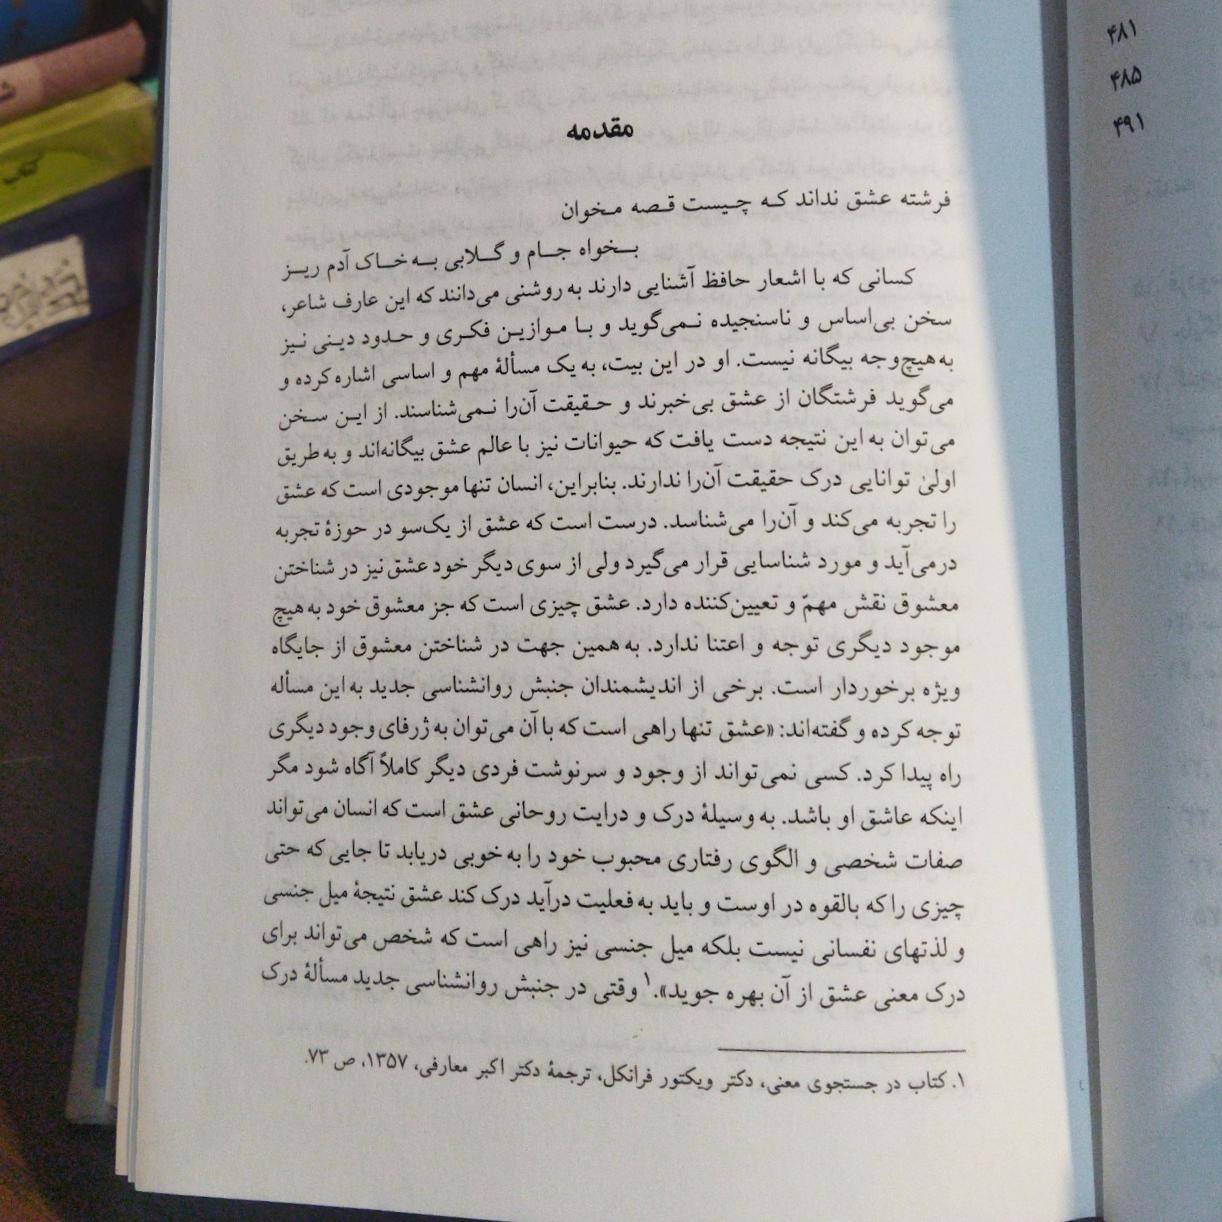 مقدمه
فرشته عشق نداند که چیست قصه مخوان
بخواه جام و گلابی به خاک آدم ریز
کسانی که با اشعار حافظ آشنایی دارند به روشنی می‌دانند که این عارف شاعر،
سخن بی‌اساس و ناسنجیده نمی‌گوید و با موازین فکری و حدود دینی نیز
به هیچ‌وجه بیگانه نیست. او در این بیت، به یک مسألهٔ مهم و اساسی اشاره کرده و
می‌گوید فرشتگان از عشق بی‌خبرند و حقیقت آن‌را نمی‌شناسند. از این سخن
می‌توان به این نتیجه دست یافت که حیوانات نیز با عالم عشق بیگانه‌اند و به طریق
اولیٰ توانایی درک حقیقت آن‌را ندارند. بنابراین، انسان تنها موجودی است که عشق
را تجربه می‌کند و آن‌را می‌شناسد. درست است که عشق از یک‌سو در حوزهٔ تجربه
درمی‌آید و مورد شناسایی قرار می‌گیرد ولی از سوی دیگر خود عشق نیز در شناختن
معشوق نقش مهمّ و تعیین‌کننده دارد. عشق چیزی است که جز معشوق خود به هیچ
موجود دیگری توجه و اعتنا ندارد. به همین جهت در شناختن معشوق از جایگاه
ویژه برخوردار است. برخی از اندیشمندان جنبش روانشناسی جدید به این مسأله
توجه کرده و گفته‌اند: «عشق تنها راهی است که با آن می‌توان به ژرفای وجود دیگری
راه پیدا کرد. کسی نمی‌تواند از وجود و سرنوشت فردی دیگر کاملاً آگاه شود مگر
اینکه عاشق او باشد. به وسیلهٔ درک و درایت روحانی عشق است که انسان می‌تواند
صفات شخصی و الگوی رفتاری محبوب خود را به خوبی دریابد تا جایی که حتی
چیزی را که بالقوه در اوست و باید به فعلیت درآید درک کند عشق نتیجهٔ میل جنسی
و لذتهای نفسانی نیست بلکه میل جنسی نیز راهی است که شخص می‌تواند برای
درک معنی عشق از آن بهره جوید».۱ وقتی در جنبش روانشناسی جدید مسألهٔ درک
۱. کتاب در جستجوی معنی، دکتر ویکتور فرانکل، ترجمهٔ دکتر اکبر معارفی، ۱۳۵۷، ص ۷۳.
۴۸۱
۴۸۵
۴۹۱